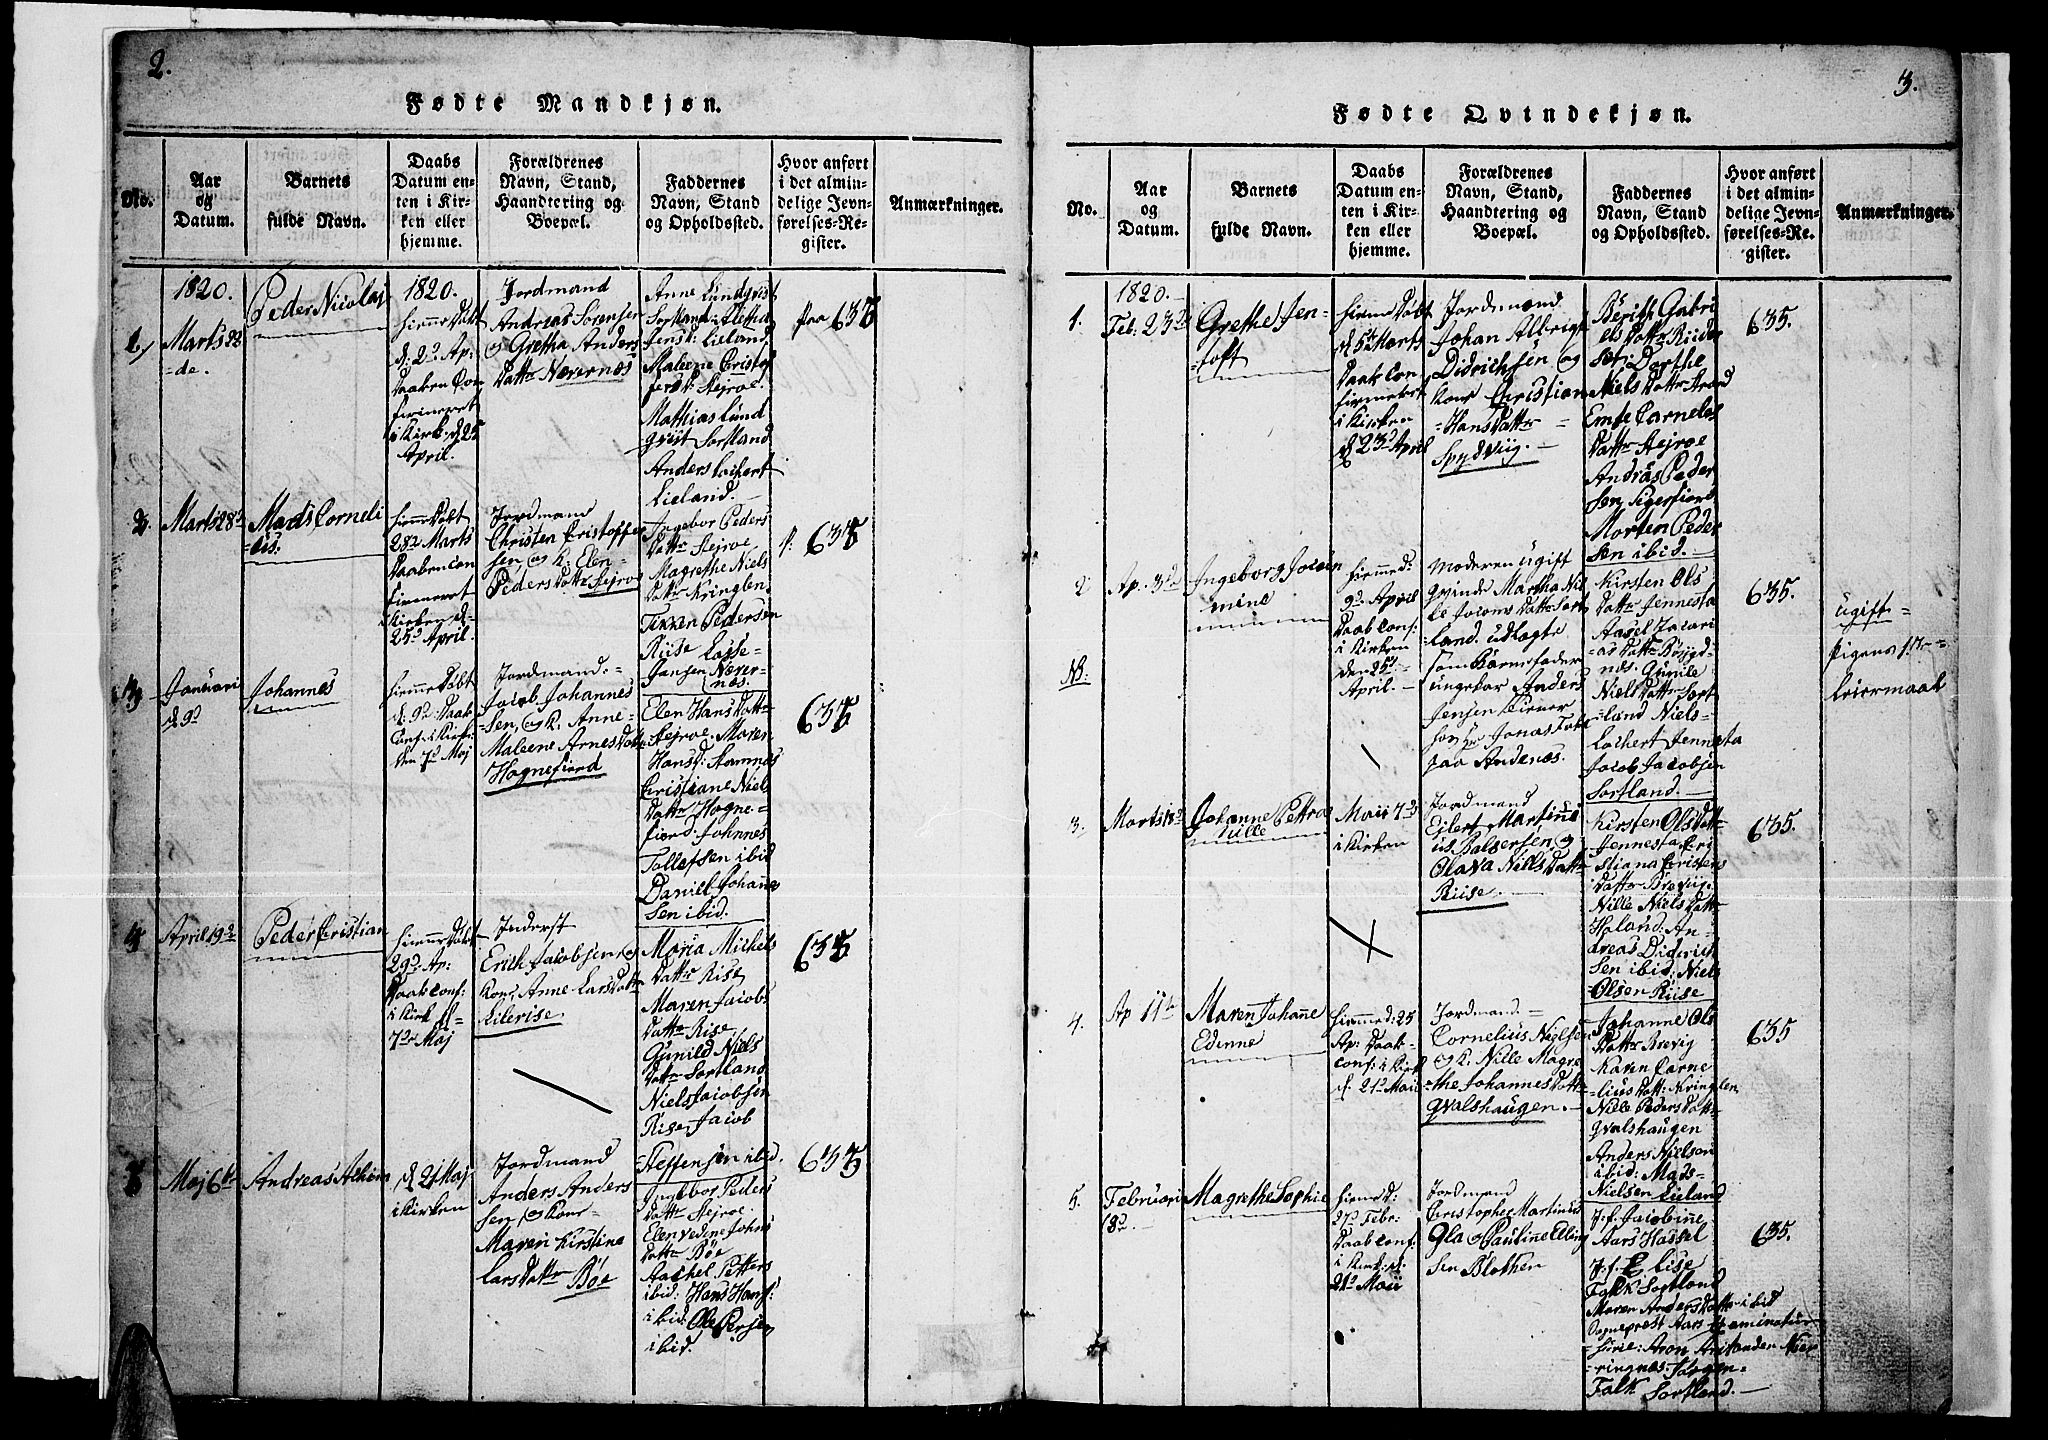 2.
Fødte Mandkjøn.
No.
Aar
og
Datum.
Barnets
fulde Navn.
Daabs
Datum en-
ten i Kir-
ken eller
hjemme.
Forældrenes
Navn, Stand,
Haandtering og
Boepæl.
Faddernes
Navn, Stand
og Opholdssted.
Hvor anført
i det almin-
delige Jevn-
førelses-Re-
gister.
Anmærkninger.
1820.
Marts 22
=de.
Peder Nicolai
1820.
hiemmeDøbt
d: 2d Ap:
Daaben Con
firmeret
i Kirk: d 25
April.
Jordmand
Andreas Sørensen
og Gretha Anders
Dattr Nævernæs
Anne Lundqvist
Sortland:
Lieland
Maleene Cristof
Stejroe.
Mathias Lund
qvist Sortland
Anders Lochert
Lieland.
paa 635
2.
Marts 28d
Mads Corneli
us.
hiemmeDøbt
28d Marts
Daaben Con
firmeret
Kirken d.
25d April.
Jordmand
Christen Cristoffer
sen, og K: Elen
Peders Dattr Stejroe
Ingebor Peders
Dattr Stejroe
Magrethe Niels
Dattr Kringlen
Pedersen
Riise Lasse
Jansen Næver-
næs.
p: 635
3
Januari
d 9d
Johannes
hiemmeDøbt
d. 9d Daab
Conf. i Kirk:
den 7d Maj
Jordmand.=
Jacob Johannes
sen, og K. Anne
Maleene Arnes Datt
Hognefiord
Elen Hans Dattr
Stejroe. Maren
Hansd: Stamnes
Christiane Niels
Dattr Hogne=
fiord. Johnnes
Tollefsen ibid
Daniel Johanne
sen ibid.
635
4
April 19d
Peder Cristian
hiemmeDøbt
29d Ap:
Daab Conf:
i Kirk d=
7d Maj
Inderst
Erich Jacobsen og
Kone, Anne Lars Datter
Lilerise
Maria Michels
Dattr Rise
Maren Jacobs
Dattr Rise
Gunild Niels
Dattr Sortland
Niels Jacobsen
Rise, Jacob
Steffensen ibid.
635
5
Maj 6te
Andreas
d 21 Maj
i Kirken
Jordmand
Anders Anders
sen, og Kone
Maren Kirstina
Lars Dattr Bøe
Ingebor Peders
Dattr Stejroe
Elen Johns
Dattr Bøe
Petters
ibid: Hans Hans:
ibid. Ole Persen
ibid.
635
3.
Fødte Qvindekjøn.
No.
Aar
og
Datum.
Barnets
fulde Navn.
Daabs
Datum en-
ten i Kir-
ken eller
hjemme.
Forældrenes
Navn, Stand,
Haandtering og
Boepæl.
Faddernes
Navn, Stand
og Opholdssted.
Hvor anført
i det almin-
delige Jevn-
førelses-Re-
gister.
Anmærkninger.
1.
1820.
Feb: 23d
Grethe Jen-
=toft
hiemmeDøbt
d 5te Marts
Daab Con
firmeret
i Kirken
d 23d April
Jordmand
Johan Albrigt
Didrichsen og
Kone Christian
=Hans Dattr
Spydviig.
Berith Gabri
els Dattr Riide
Dorthe
Niels Dattr Strand
Cornelas
Dattr Stejroe
Andras Peder
sen Sigerfiord
Morten Peder
sen ibid.
635.
2
Ap. 3d
Ingeborg Jocin
mine
hiemmed:
9d April
Daab Conf:
i Kirken
den 25d
April.
Moderen ugift
Qvinde Martha Nil
le Jacons Dattr Sort
land. udlagte
som Barnefader
ungekar Anders
Jensen
hos Jonas Falk
paa Andenæs.
Kirsten Ols
Dattr Jennesta
Assel Zacari
as Dattr Bøigd
næs. Gunile
Niels Dattr Sort
land Niels
Lochert Jennesta
Jacob Jacobsen
Sortland.
635.
ugift
Pigens 1ste
Leiermaal
NB:
3.
Marts 18d
Johanne Pettra
Nille
Maii 7d
i Kirken
Jordmand
Ejlert Martini
us Balsersen og
Olava Niels Datt
Riise.
Kirsten Ols Datt
Jennesta Cri
stiana Cristens
Dattr Breviig.
Nille Niels Dattr
Holand: An
dreas Diderich
sen ibid: Niels
Olsen Riise
635.
4.
Ap 11te
Maren Johanne
Edinne
hiemmed: 25
Ap: Daab
Conf: i Kirk
d. 21d Maii
Jordmand
Cornelius Nielsen
og K: Nille Magre
the Johannes Datt
Qvalshaugen.
Johanne Ols
Dattr Brevig
Karin Corne
lius Datt: Kringlen
Nille Peders Datt
Qvalshaugen
Anders Nielsen
ibid: Mats
Nielsen Lieland
635
5.
Februari
18d
Magrethe Sophie
hiemed:
27d Febr:
Daab Conf:
i Kirk: d.
21d Maii
Jordmand
Christopher Martinus
Gla og Pauline Elling
sen Blokken
J.f. Jacobine
Aars Hassel
J.f. Elise
Falk Sortland
Maren Anders Dattr ibid
Sogneprest Aars Examinatus
Aron
Falk Sortland.
635.